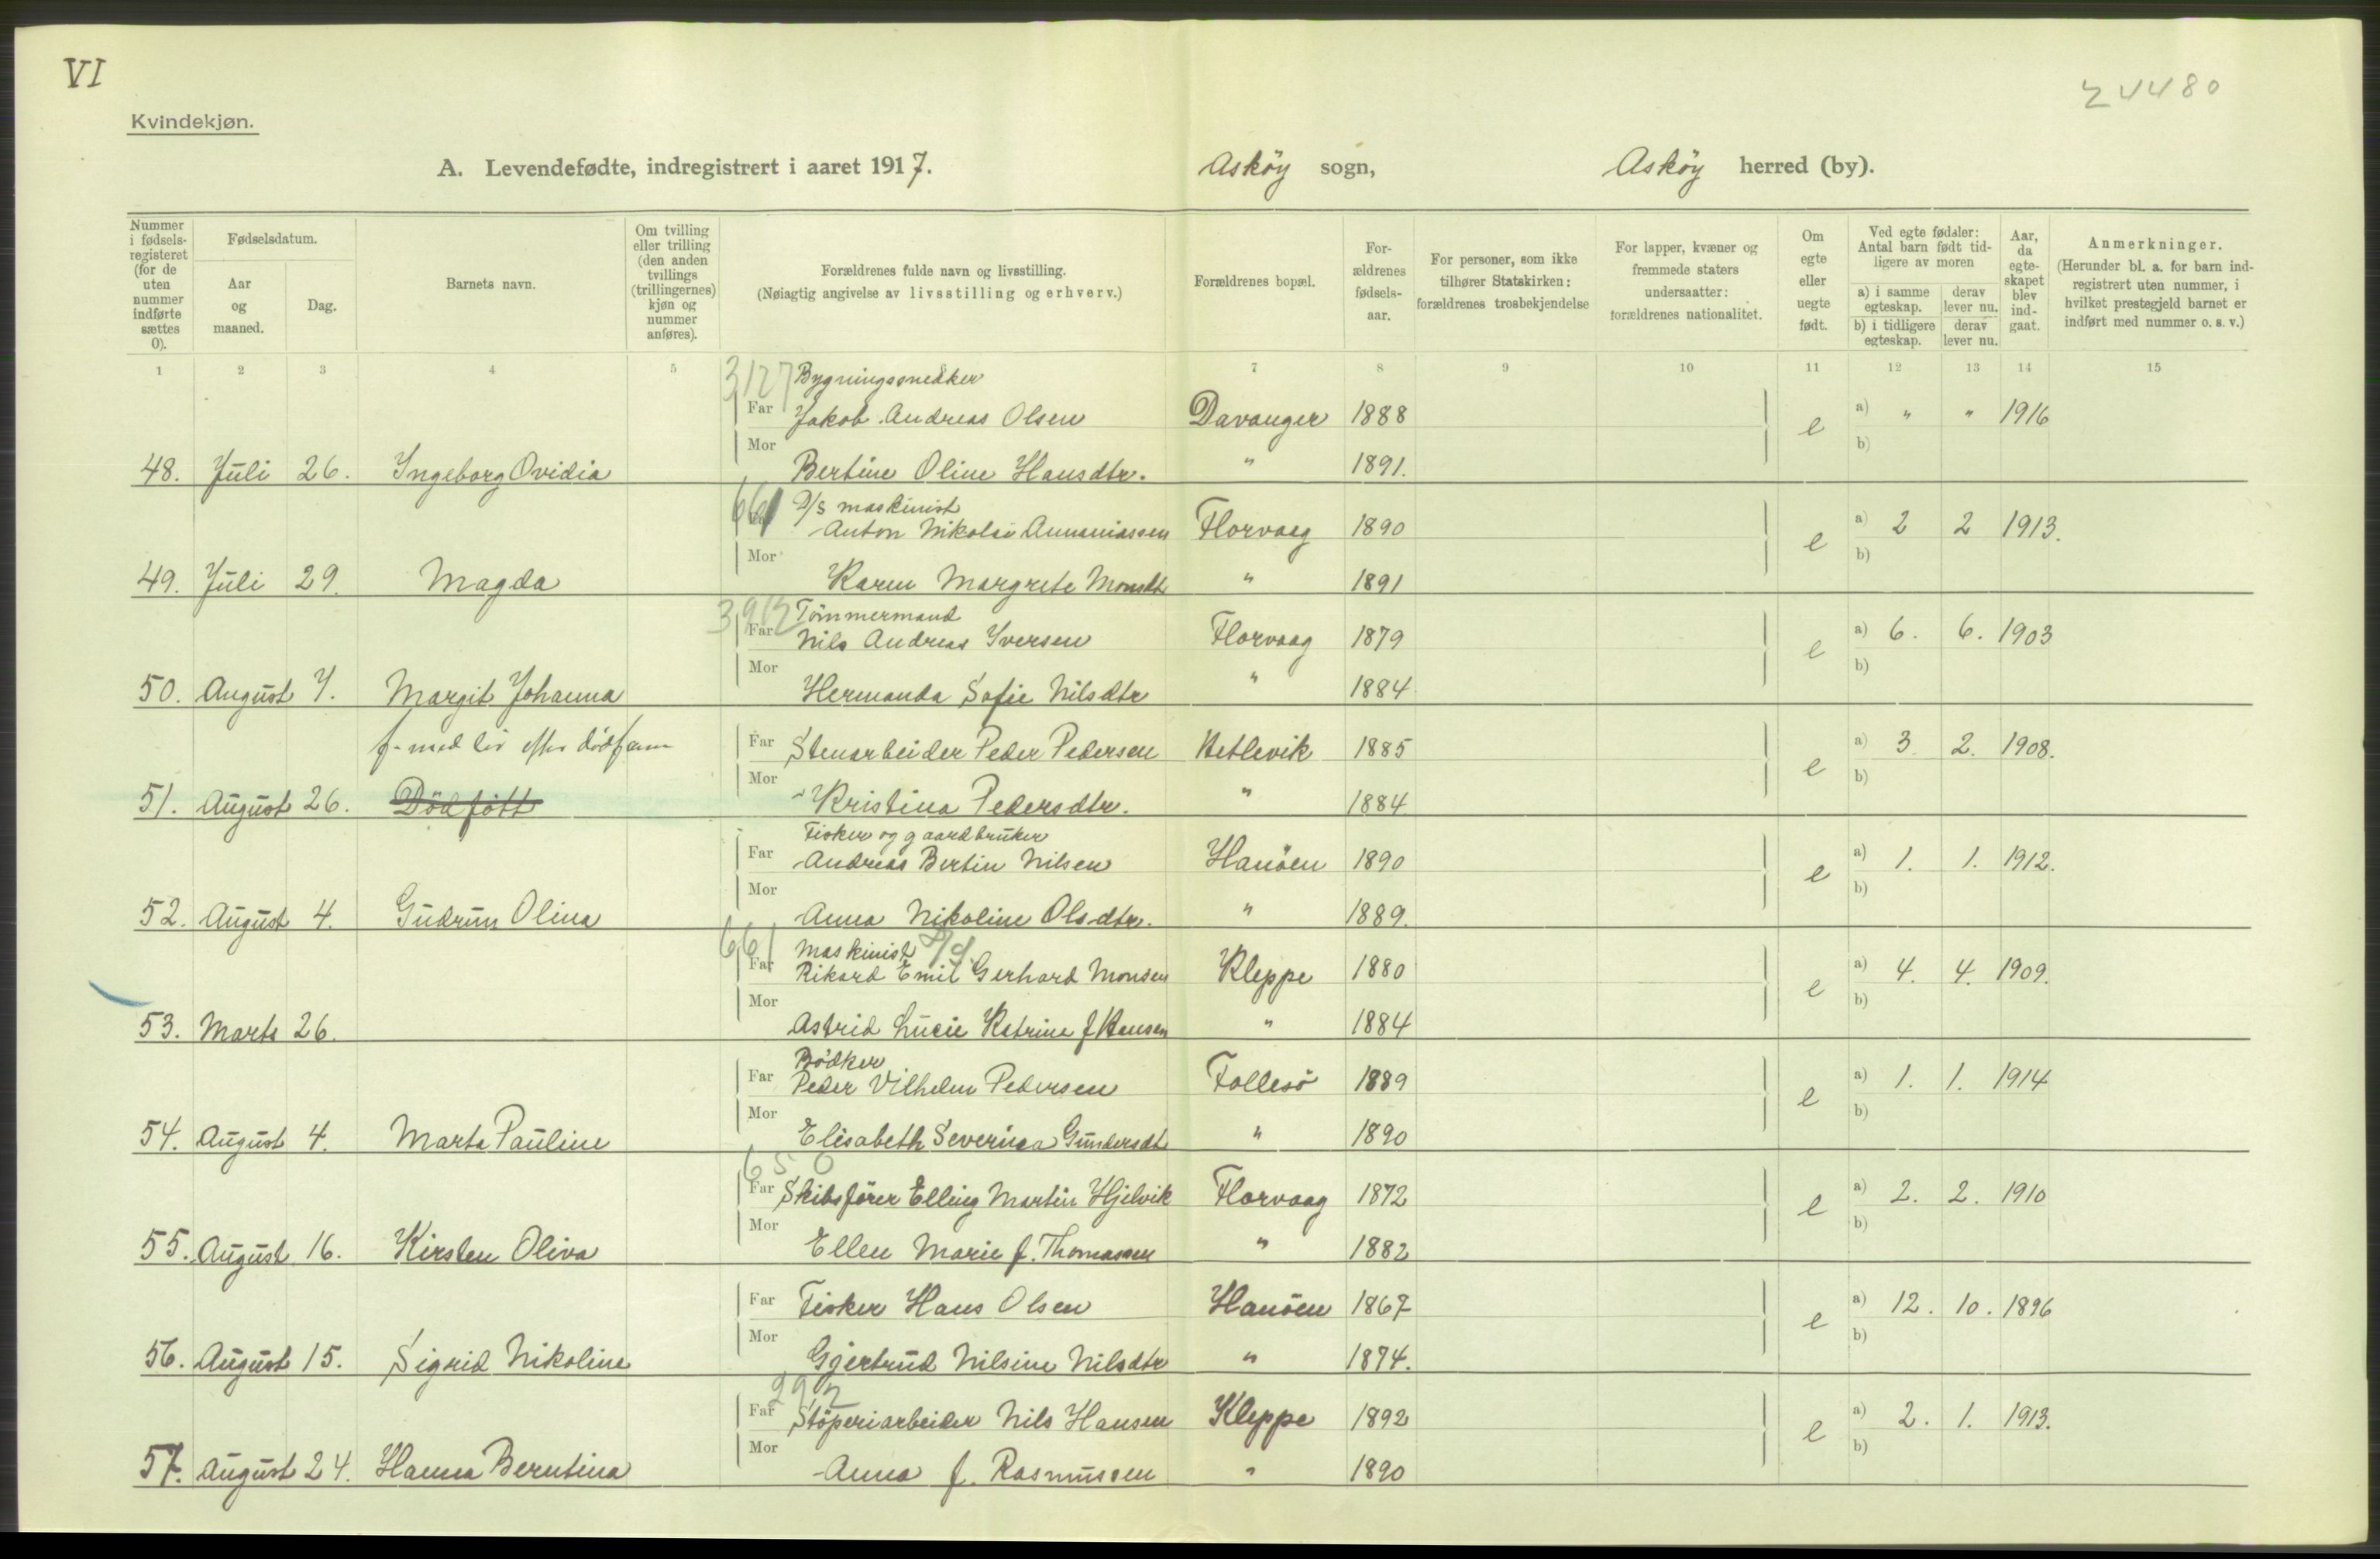 VI
Z 4480
Kvindekjøn.
A. Levendefødte, indregistrert i aaret 1917. Asköy sogn, Asköy herred (by).
Nummer i fødsels-registeret (for de uten nummer indførte sættes 0).
Fødselsdatum.
Aar og maaned.
Dag.
Barnets navn.
Om tvilling eller trilling (den anden tvillings (trillingernes) kjøn og nummer anføres).
Forældrenes fulde navn og livsstilling.
(Nøiagtig angivelse av livsstilling og erhverv.)
Forældrenes bopæl.
For-ældrenes fødsels-aar.
For personer, som ikke tilhører Statskirken: forældrenes trosbekjendelse
For lapper, kvæner og fremmede staters undersaatter: forældrenes nationalitet.
Om egte eller uegte født.
Ved egte fødsler: Antal barn født tid-ligere av moren
a) i samme egteskap.
derav lever nu.
b) i tidligere egteskap.
derav lever nu.
Aar, da egte-skapet blev ind-gaat.
Anmerkninger.
(Herunder bl. a. for barn ind-registrert uten nummer, i hvilket prestegjeld barnet er indført med nummer o. s. v.)
1 2 3 4 5 7 8 9 10 11 12 13 14 15
3127 Bygningssnedker
Far Jakob Andreas Olsen Davanger 1888 e a) " " 1916
Mor b)
48. Juli 26. Ingeborg Ovidia Bertine Oline Hansdtr. " 1891.
661 D/S maskinist
Anton Nikolai Annaniassen Florvaag 1890 e a) 2 2 1913.
Mor b)
49. Juli 29. Magda Karen Margrete Monsdtr " 1891
3912 Tömmermand
Far Nils Andreas Iversen Florvaag 1879 e a) 6. 6. 1903
Mor b)
50. August 7. Margit Johanna Hermanda Sofie Nilsdtr " 1884
f. med liv efter dödf
Far Stenarbeider Peder Pedersen Hetlevik 1885 e a) 3 2. 1908.
Mor b)
51. August 26. Död född Kristina Pedersdtr. " 1884
Fisker og gaardbruker
Far Andreas Bertin Nilsen Hanöen 1890 e a) 1. 1. 1912.
Mor b)
52. August 4. Gudrun Olina Anna Nikoline Olsdtr. " 1889.
661 Maskinist D/S
Far Rikard Emil Gerhard Monsen Kleppe 1880 e a) 4. 4. 1909.
Mor b)
53. Marts 26. Astrid Lucie Katrine f Hansen " 1884
Bödker
Far Peder Vilhelm Pedersen Follesö 1889 e a) 1. 1. 1914
Mor b)
54. August 4. Marta Pauline Elisabeth Severina Gundersdtr " 1890
650
Far Skibsförer Elling Martin Hjelvik Florvaag 1872 e a) 2. 2. 1910
Mor b)
55. August 16. Kirsten Oliva Ellen Marie f. Thomassen " 1882
Far Fisker Hans Olsen Hanöen 1867 e a) 12. 10. 1896
Mor b)
56. August 15. Sigrid Nikoline Gjertrud Nilsine Nilsdtr " 1874.
292
Far Stöperiarbeider Nils Hansen Kleppe 1892 e a) 2. 1. 1913.
Mor b)
57. August 24. Hanna Berntina Anna f. Rasmussen " 1890